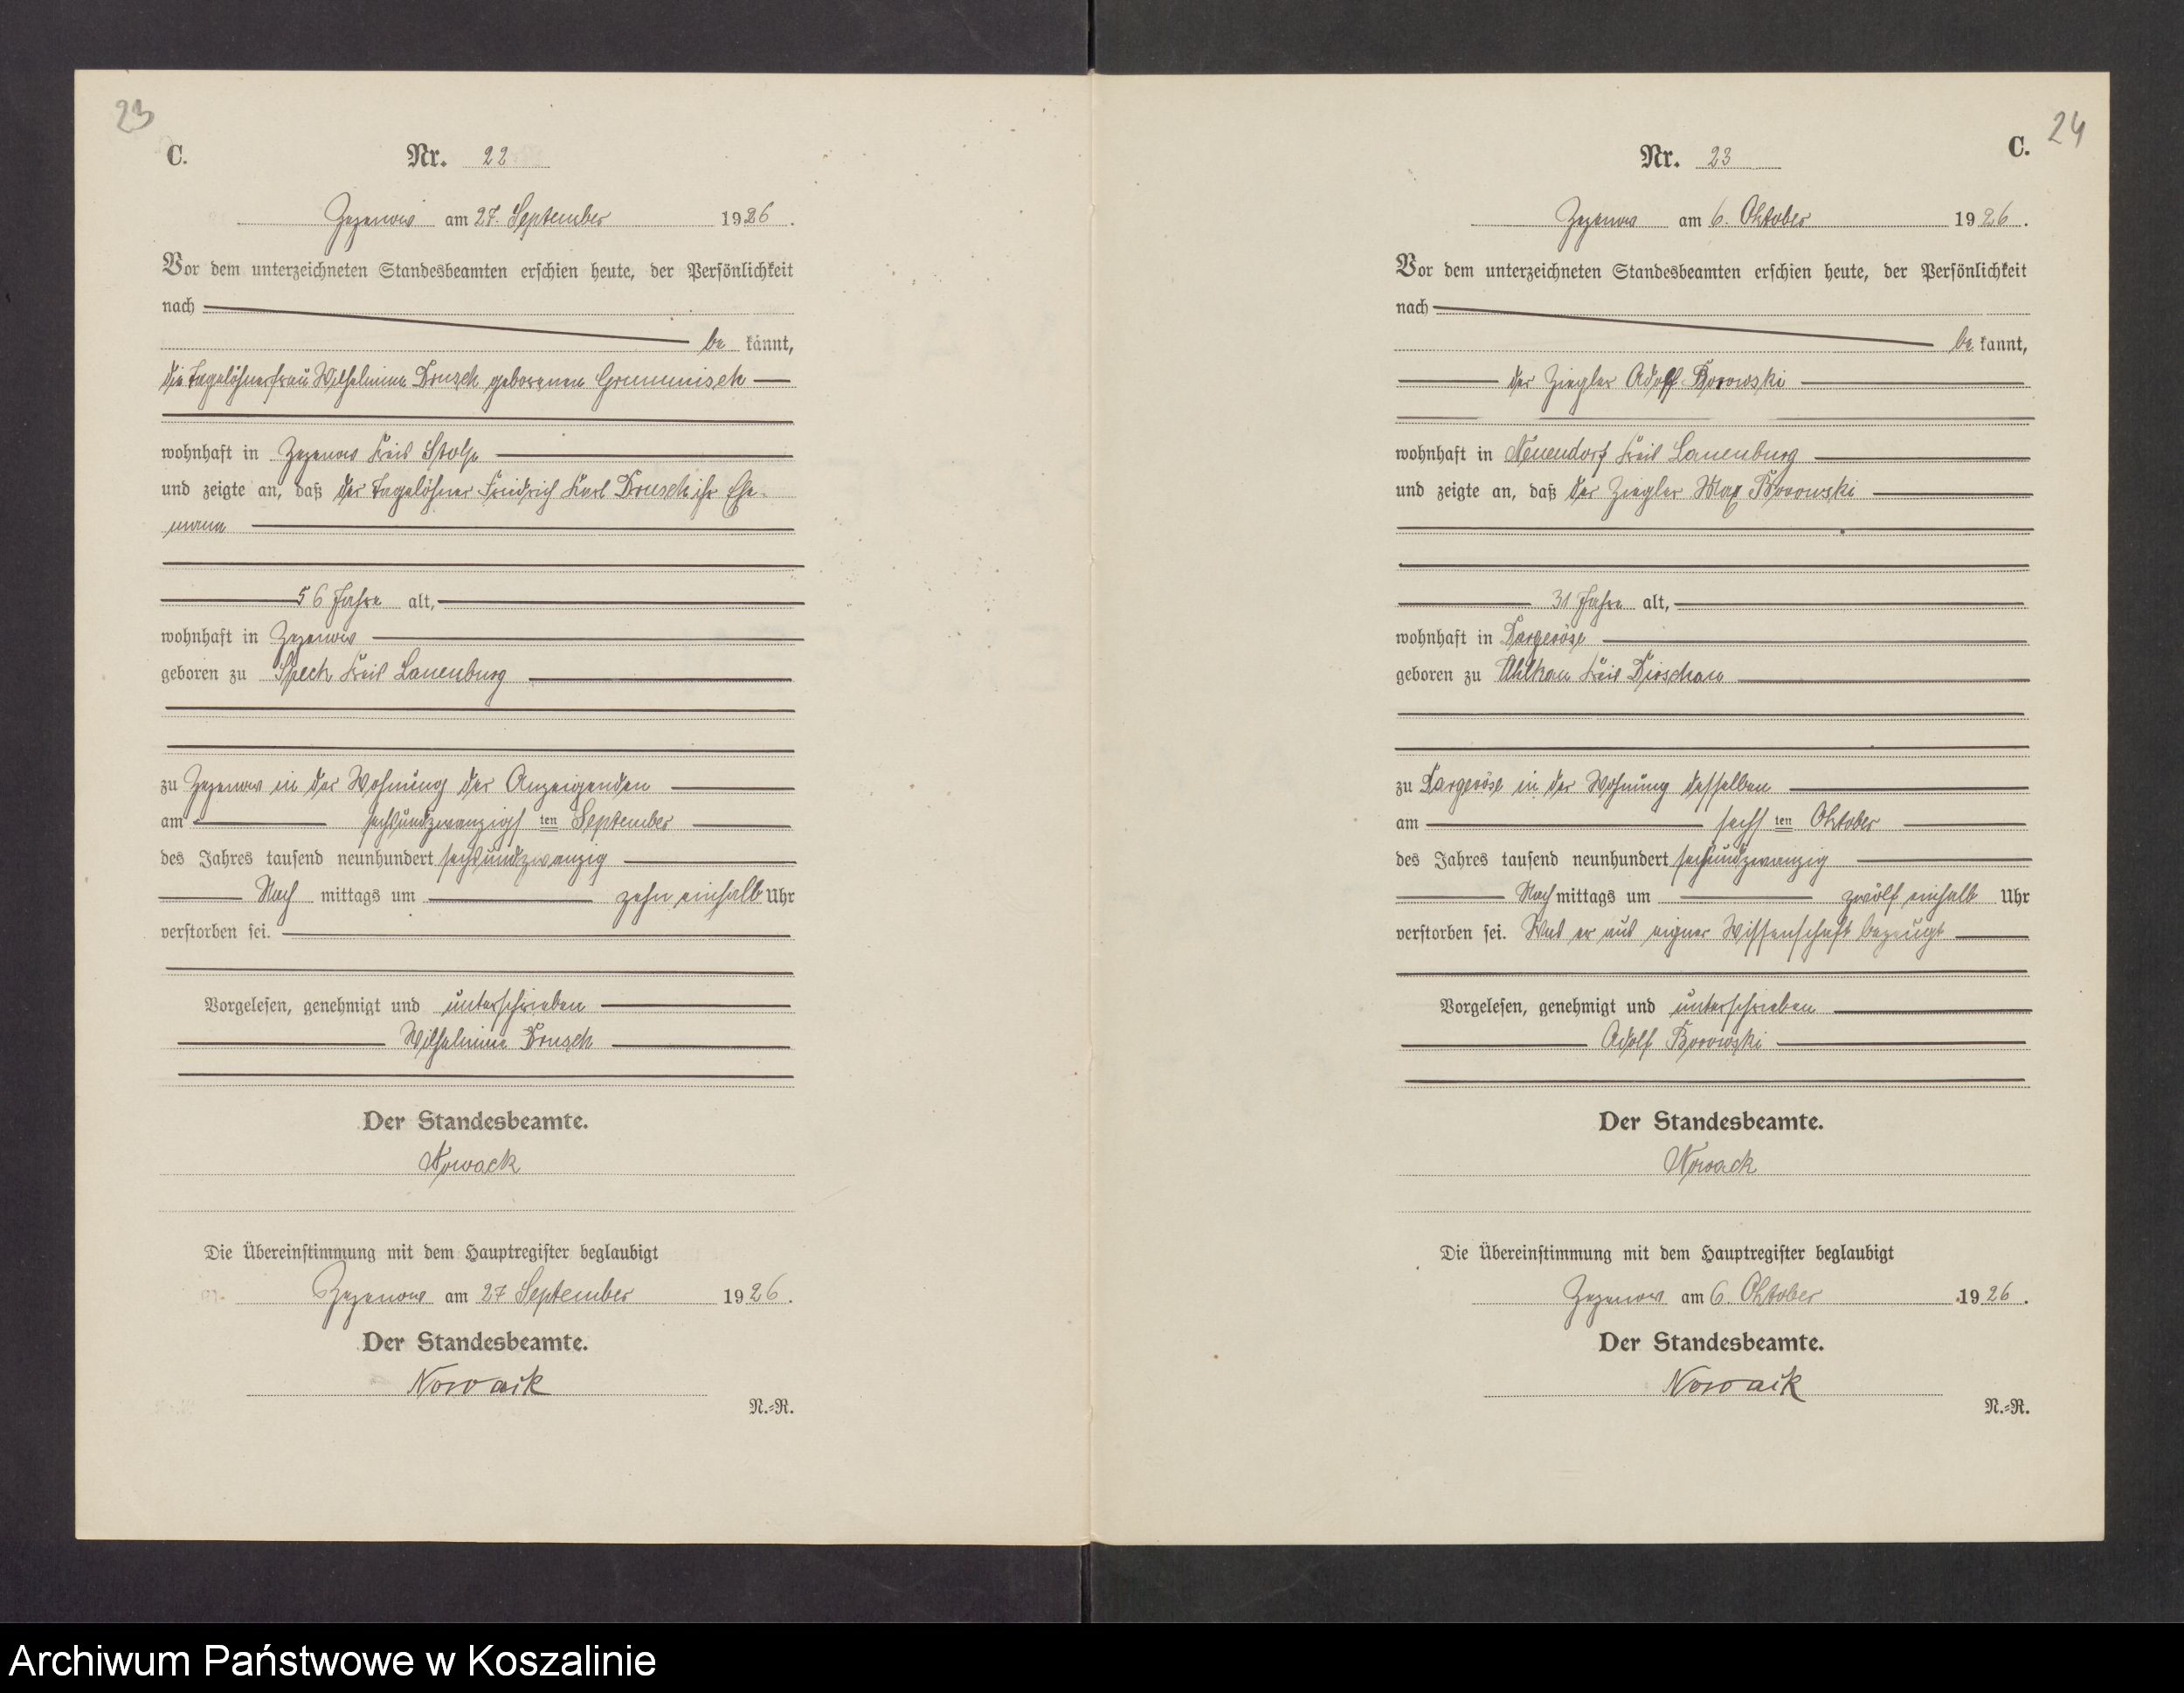 23
C.
Nr. 22
Zezenow am 27. September 1926.
Vor dem unterzeichneten Standesbeamten erschien heute, der Persönlichkeit
nach
be kannt,
die Tagelöhnerfrau Wilhelmine Drusch geborenen
wohnhaft in Zezenow Kreis Stolp
und zeigte an, daß der Tagelöhner Friedrich Karl Drusch ihr Ehe-
mann
56 Jahre alt,
wohnhaft in Zezenow
geboren zu Speck Kreis Lauenburg
zu Zezenow in der Wohnung der Anzeigenden
am sechsundzwanzigs ten September
des Jahres tausend neunhundert sechsundzwanzig
Nach mittags um zehn einhalb Uhr
verstorben sei.
Vorgelesen, genehmigt und unterschrieben
Wilhelmine Drusch
Der Standesbeamte.
Nowack
Die Übereinstimmung mit dem Hauptregister beglaubigt
Zezenow am 27 September 1926.
Der Standesbeamte.
Nowack
N.=R.
24
C.
Nr. 23
Zezenow am 6. Oktober 1926.
Vor dem unterzeichneten Standesbeamten erschien heute, der Persönlichkeit
nach
be kannt,
der Ziegler Adolf Borowski
wohnhaft in Neuendorf Kreis Lauenburg
und zeigte an, daß der Ziegler Max Borowski
31 Jahre alt,
wohnhaft in Dargeröse
geboren zu Uhlkau Kreis Dirschau
zu Dargeröse in der Wohnung desselben
am sechs ten Oktober
des Jahres tausend neunhundert sechsundzwanzig
Nach mittags um zwölf einhalb Uhr
verstorben sei. Was er aus eigner Wissenschaft bezeugt
Vorgelesen, genehmigt und unterschrieben
Adolf Borowski
Der Standesbeamte.
Nowack
Die Übereinstimmung mit dem Hauptregister beglaubigt
Zezenow am 6. Oktober 1926.
Der Standesbeamte.
Nowack
N.=R.
Archiwum Państwowe w Koszalinie